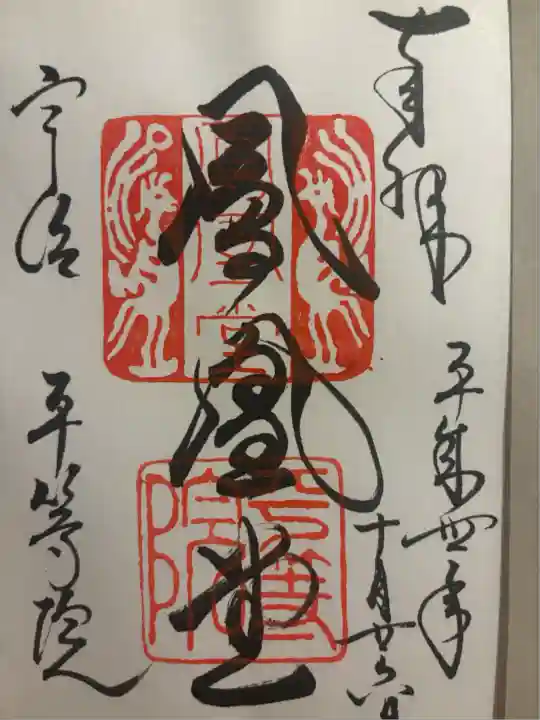 奉拝
平成四年
十月廿六日
鳳凰堂
鳳凰堂
平等院
宇治
平等院